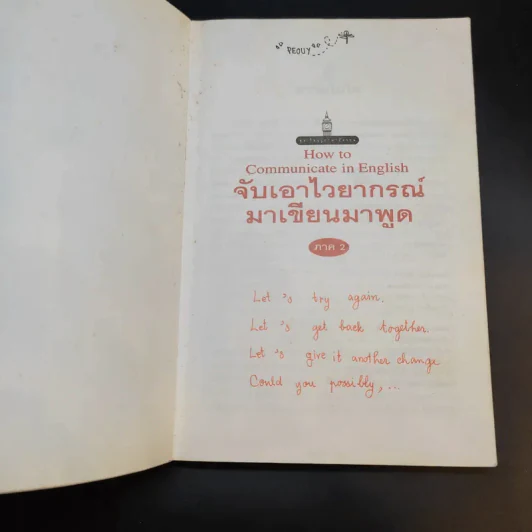 PEQUY
How to
Communicate in English
จับเอาไวยากรณ์
มาเขียนมาพูด
ภาค 2
Let 's try again.
Let 's get back together.
Let 's give it another change
Could you possibly, ...